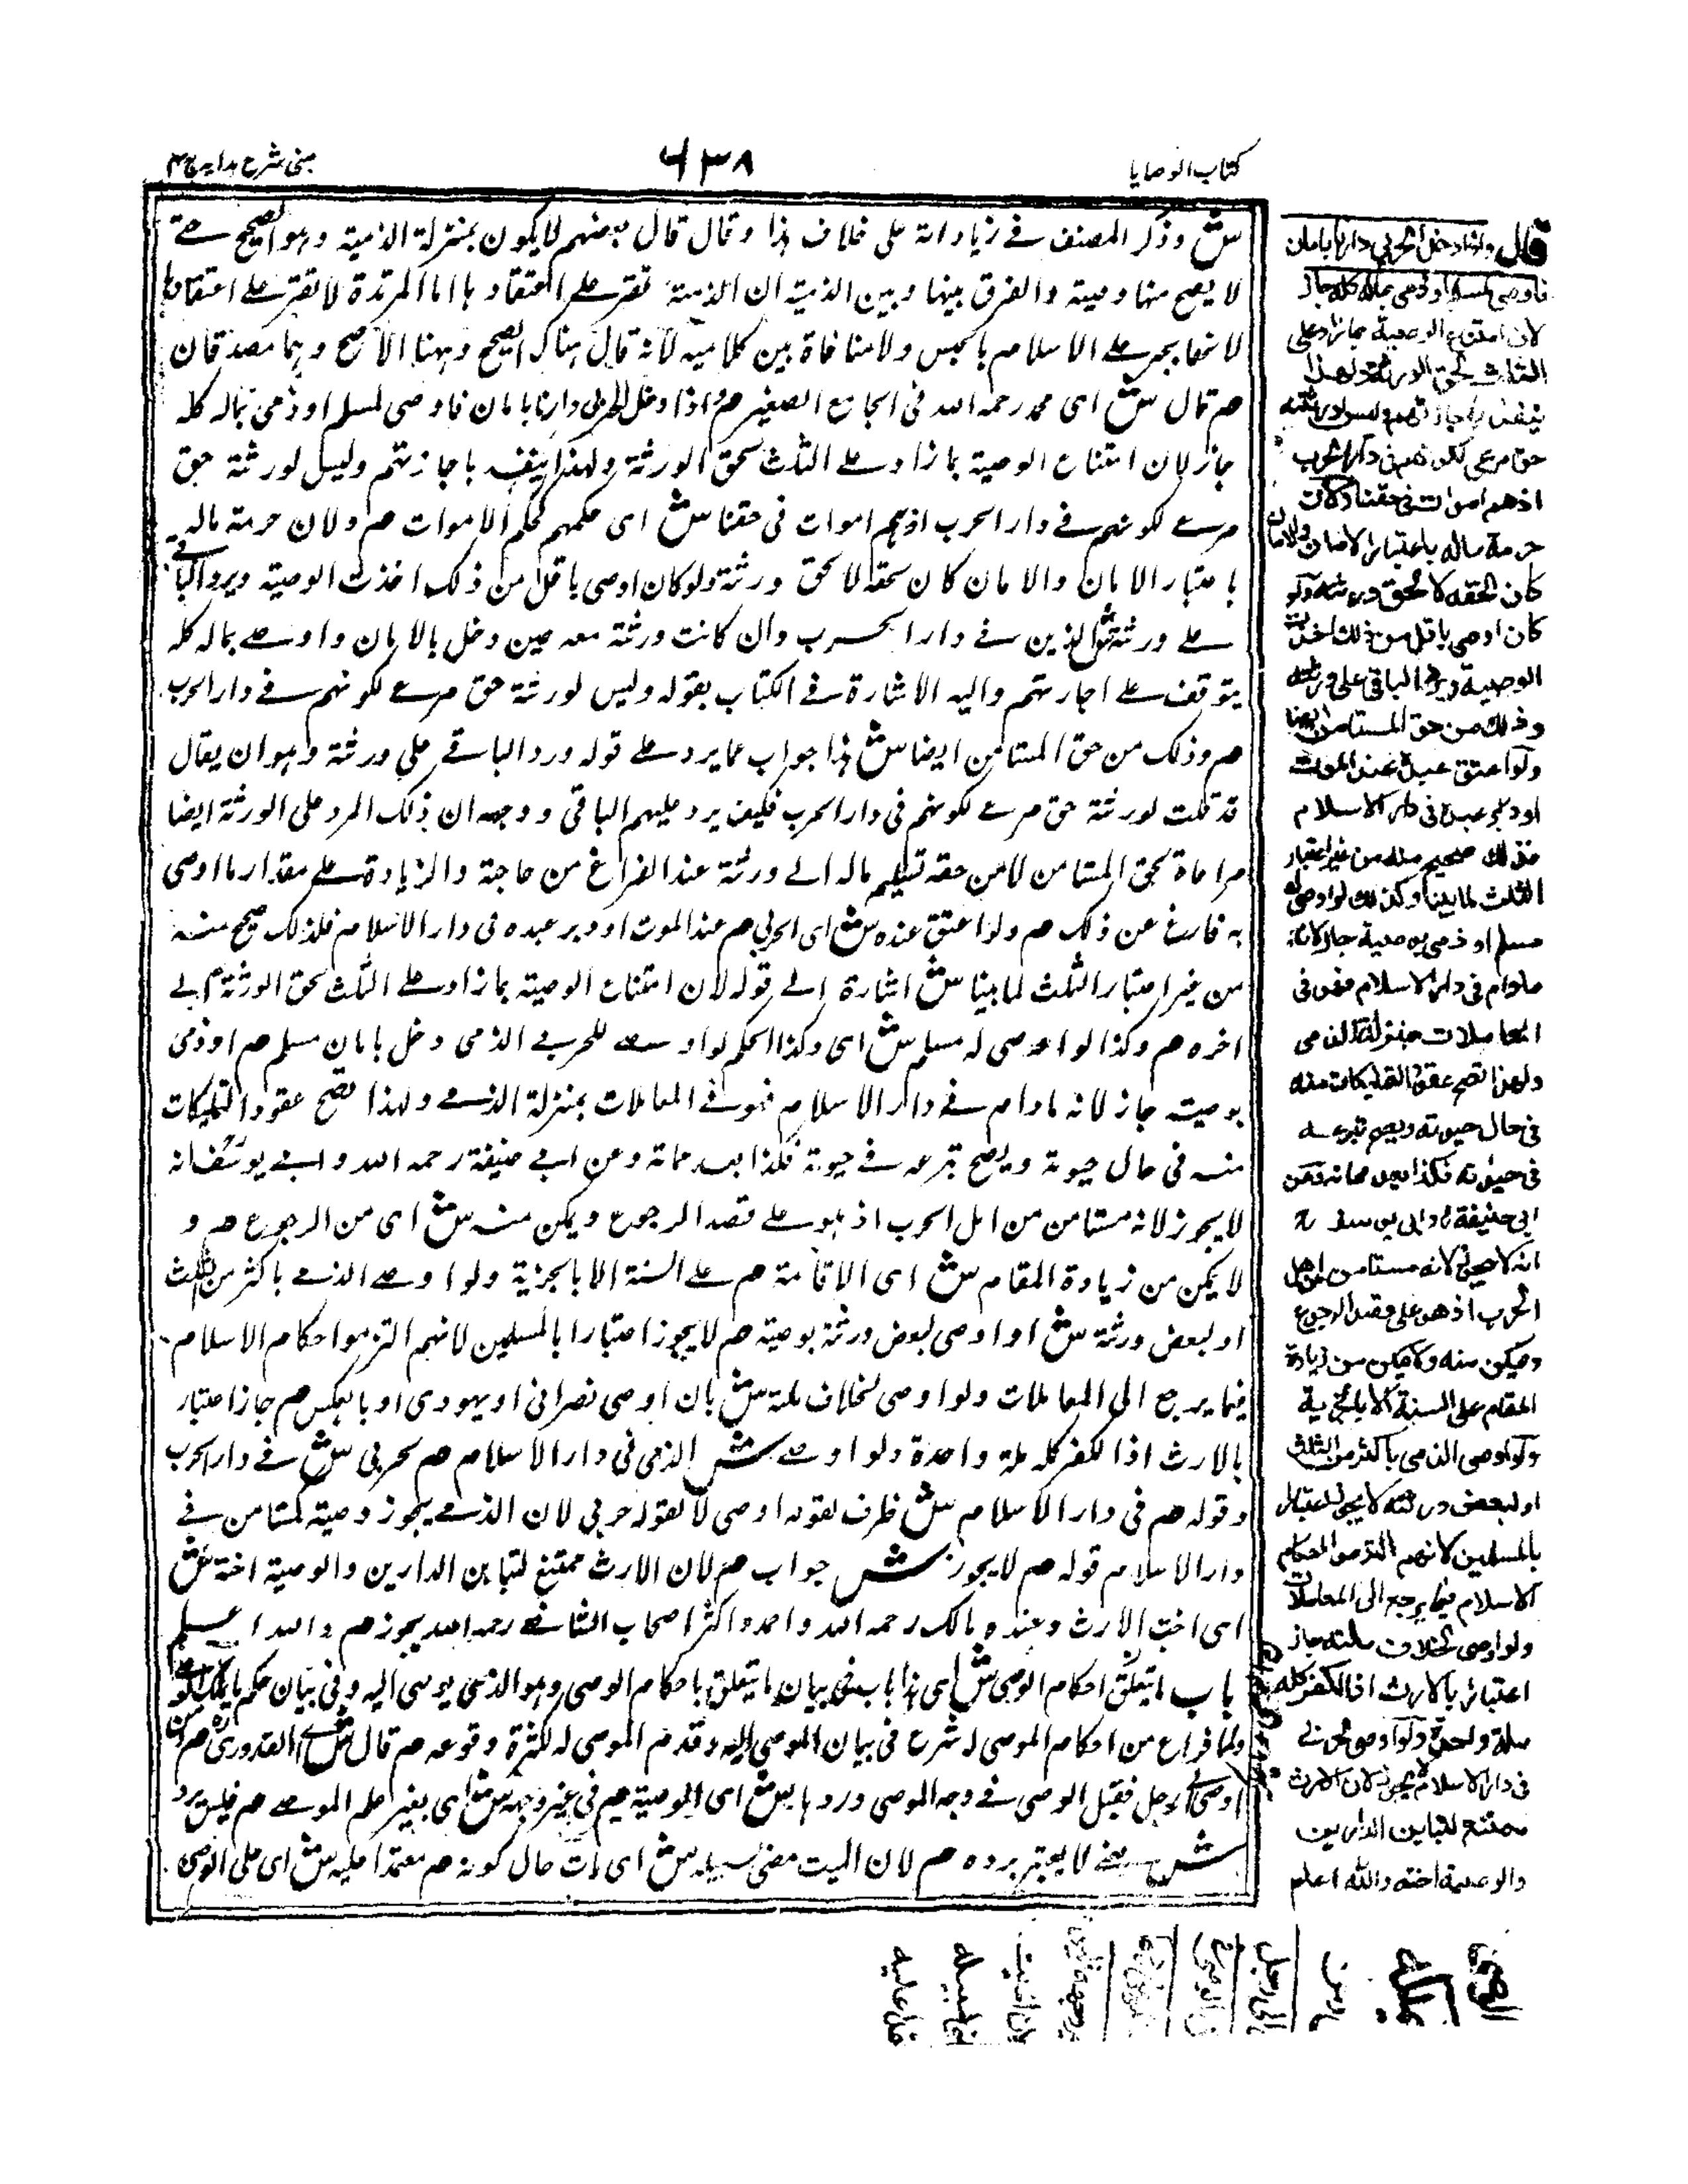 كتاب الوصايا
٦٣٨
عينى شرح هدايه ج ٤
ش وذكر المصنف فے زياداته على خلاف هذا وقال قال بعضهم لا يكون بمنزلة الذمية وهو الصحيح حتے
لا يصح منها وصية والفرق بينها وبين الذمية ان الذمية تقر علے اعتقادها اما المرتدة لا تقر علے اعتقادها
لانها يجبر علے الاسلام بالحبس ولا منافاة بين كلاميه لانه قال هناك الصحيح وههنا الاصح وهما مصدقان
هم قال ش اى محمد رحمه الله فى الجامع الصغير هم واذا دخل الحربى دارنا بامان فاوصى لمسلم او ذمى بماله كله
جاز لان امتناع الوصية بما زاد علے الثلث لحق الورثة ولهذا ينفذ باجازتهم وليس لورثة حق
مرعے لكونهم فے دار الحرب اذ هم اموات فى حقنا ش اى حكمهم كحكم الاموات هم ولان حرمة ماله
باعتبار الامان والامان كان لحقه لا لحق ورثة ولو كان اوصى باقل من ذلك اخذت الوصية ويرد الباقے
علے ورثة ش الذين فے دار الحرب وان كانت ورثة معه حين دخل بالامان واوصے بماله كله
يتوقف علے اجازتهم واليه الاشارة فے الكتاب بقوله وليس لورثة حق مرعے لكونهم فے دار الحرب
هم وذلك من حق المستامن ايضا ش هذا جواب عما يرد علے قوله ورد الباقے على ورثة وهو ان يقال
قد قلت لورثة حق مرعے لكونهم فى دار الحرب فكيف يرد عليهم الباقى ووجهه ان ذلك المرد على الورثة ايضا
مراعاة لحق المستامن لان من حقه تسليم ماله الے ورثة عند الفراغ من حاجة والزيادة علے مقدار ما اوصى
به فارغ عن ذلك هم ولو اعتق عنده ش اى الحربى هم عند الموت او دبر عبده فى دار الاسلام فلذلك صحيح منه
من غير اعتبار الثلث لما بينا ش اشارة الے قوله لان امتناع الوصية بما زاد علے الثلث لحق الورثة الے
اخره هم وكذا لو اوصى له مسلم ش اى وكذا الحكم لو اوصے للحربے الذمى دخل بامان مسلم هم او ذمى
بوصية جاز لانه ما دام فے دار الاسلام فهو فے المعاملات بمنزلة الذمے ولهذا تصح عقود التمليكات
منه فى حال حيوة ويصح تبرعه فے حيوة فكذا بعد مماته وعن ابے حنيفة رحمه الله وابے يوسف انه
لا يجوز لانه مستامن من اهل الحرب اذ هو علے قصد الرجوع ويمكن منه ش اى من الرجوع هم و
لا يمكن من زيادة المقام ش اى الاقامة هم علے السنة الا بالجزية ولو اوصے الذمے باكثر من الثلث
او لبعض ورثة ش او اوصى لبعض ورثة بوصية هم لا يجوز اعتبارا بالمسلمين لانهم التزموا احكام الاسلام
فيما يرجع الى المعاملات ولو اوصى لخلاف ملته ش بان اوصى نصرانى او يهودى او بالعكس هم جاز اعتبار
بالارث اذا الكفر كله ملة واحدة ولو اوصے ش الذمى فى دار الاسلام هم لحربى ش فے دار الحرب
وقوله هم فى دار الاسلام ش ظرف لقوله اوصى لا لقوله حربى لان الذمے يجوز وصية لمستامن فے
دار الاسلام قوله هم لا يجوز ش جواب هم لان الارث ممتنع لتباين الدارين والوصية اخته ش
اى اخت الارث وعنده مالك رحمه الله واحمد واكثر اصحاب الشافعے رحمه الله يجوز هم والله اعلم
باب ما يتعلق احكام الوصى ش اى هذا باب فى بيان ما يتعلق باحكام الوصى وهو الذمى يوصى اليه وفى بيان حكم ما يملك
ولما فراغ من احكام الموصى له شرع فى بيان الموصى اليه وقدم الموصى له لكثرة وقوعه هم قال ش اے القدورى هم ومن
اوصى الے رجل فقبل الوصى فے وجه الموصى وردها ش اى الوصية هم فى غير وجهه ش اى بغير علم الموصے هم فليس برد
ش يعنے لا يعتبر برده هم لان الميت مضى لسبيله ش اى مات حال كونه هم معتمدا عليه ش اى على الوصى
قال واذا دخل الحربي دارنا بامان
فاوصى لمسلم او ذمى بماله كله جاز
لان امتناع الوصية بما زاد على
الثلث لحق الورثة ولهذا
ينفذ باجازتهم وليس لورثته
حق مرعى لكونهم فى دار الحرب
اذ هم اموات فى حقنا ولان
حرمة ماله باعتبار الامان والامان
كان لحقه لا لحق ورثته ولو
كان اوصى باقل من ذلك اخذت
الوصية ويرد الباقى على ورثته
وذلك من حق المستامن ايضا
ولو اعتق عبده عند الموت
او دبر عبده فى دار الاسلام
فذلك صحيح منه من غير اعتبار
الثلث لما بينا وكذلك لو اوصى له
مسلم او ذمى بوصية جاز لانه
مادام فى دار الاسلام فهو فى
المعاملات بمنزلة الذمى
ولهذا تصح عقود التمليكات منه
فى حال حيوته ويصح تبرعه
فى حيوته فكذا بعد مماته وعن
ابى حنيفة وابى يوسف ره
انه لا يجوز لانه مستامن من اهل
الحرب اذ هو على قصد الرجوع
ويمكن منه ولا يمكن من زيادة
المقام على السنة الا بالجزية
ولو اوصى الذمى باكثر من الثلث
او لبعض ورثته لا يجوز اعتبارا
بالمسلمين لانهم التزموا احكام
الاسلام فيما يرجع الى المعاملات
ولو اوصى لخلاف ملته جاز
اعتبارا بالارث اذ الكفر كله
ملة واحدة ولو اوصى لحربى
فى دار الاسلام لا يجوز لان الارث
ممتنع لتباين الدارين
والوصية اخته والله اعلم
ومن
الى رجل
لسبيله
عليه